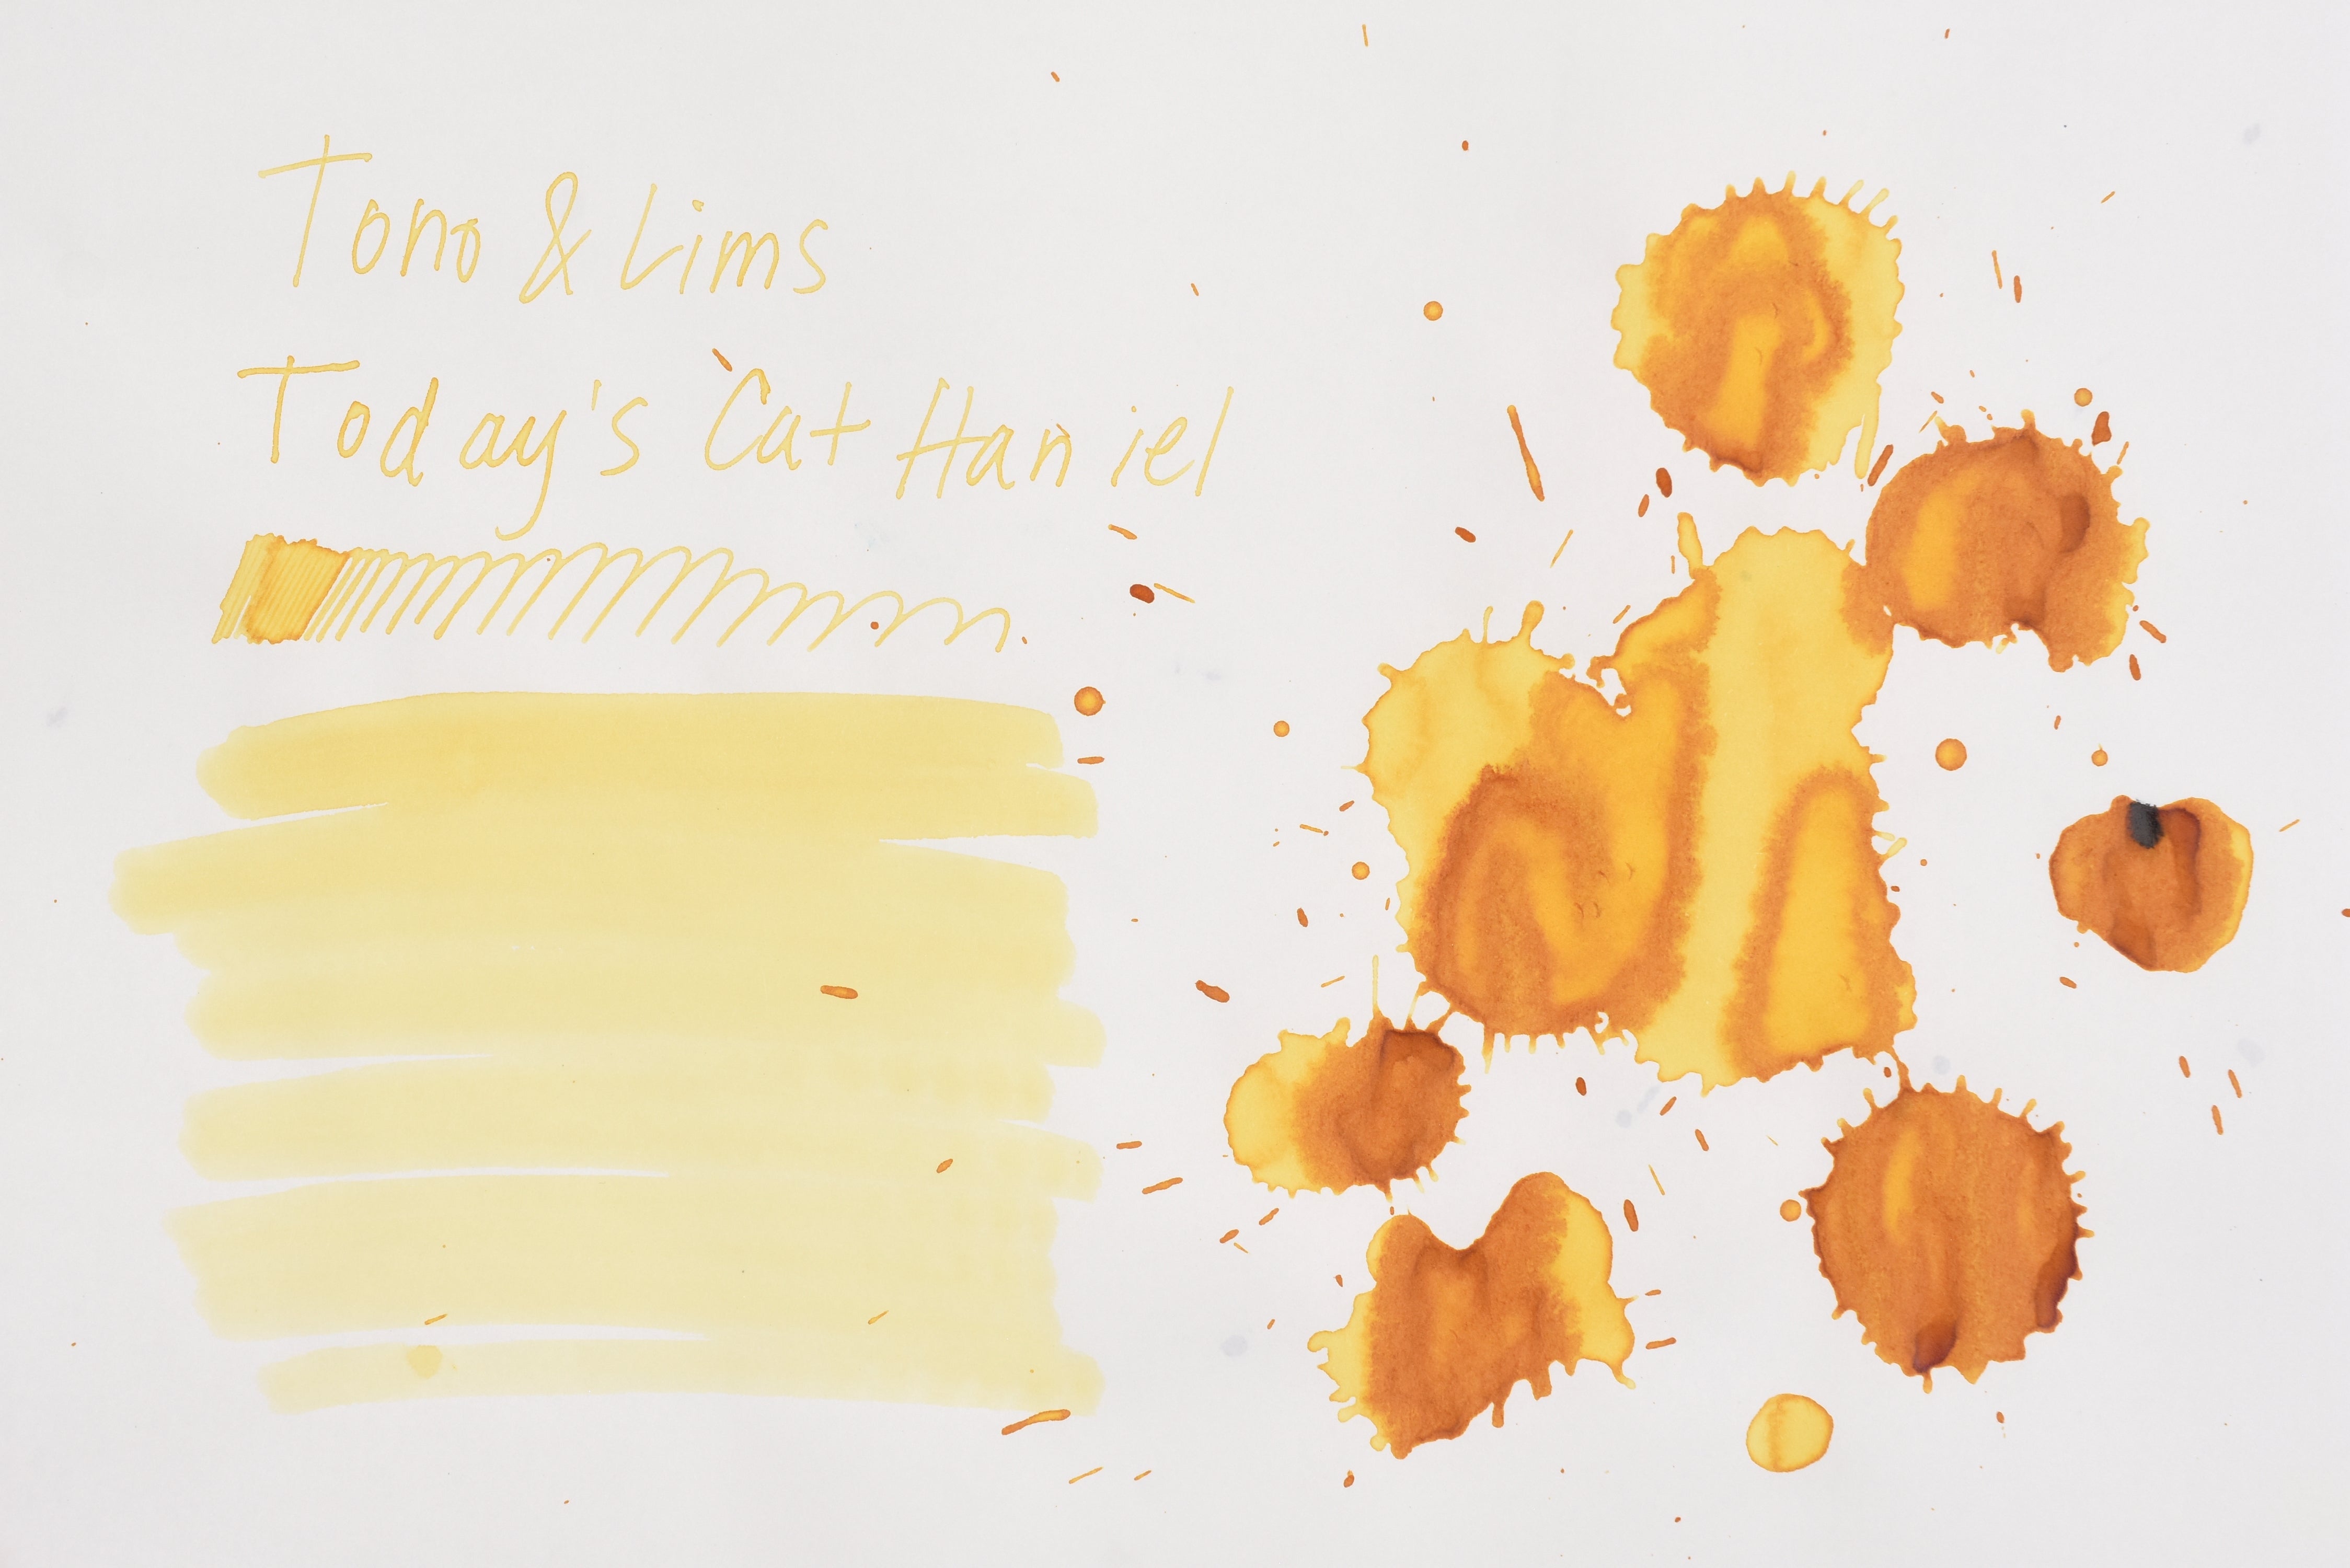 Tono & Lims
Today's Cat Haniel